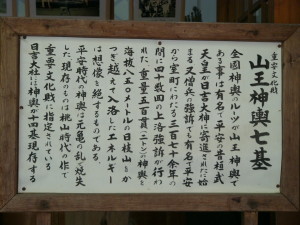 重要文化財
山王神輿七基
全國神輿のルーツが山王神輿で
ある事は有名で平安の昔桓武
天皇が日吉大神に寄進されたに始
まる 又僧兵の強訴でも有名で平安
から室町にわたる三百七十余年の
間に四十数回の上洛強訴が行わ
れた 重量五百貫(二トン)の神輿を
海抜八五〇メートルの比叡山をか
つぎ越えて入洛したエネルギー
は想像を絶するものである
平安時代の神輿は元亀の乱で焼失
した現存のものは桃山時代の作で
重要文化財に指定されている
日吉大社に神輿が十四基現存する